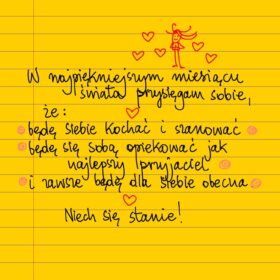 W najpiękniejszym miesiącu
świata przysięgam sobie,
że:
będę siebie kochać i szanować
będę się sobą opiekować jak
najlepszy przyjaciel
i zawsze będę dla siebie obecna
Niech się stanie!